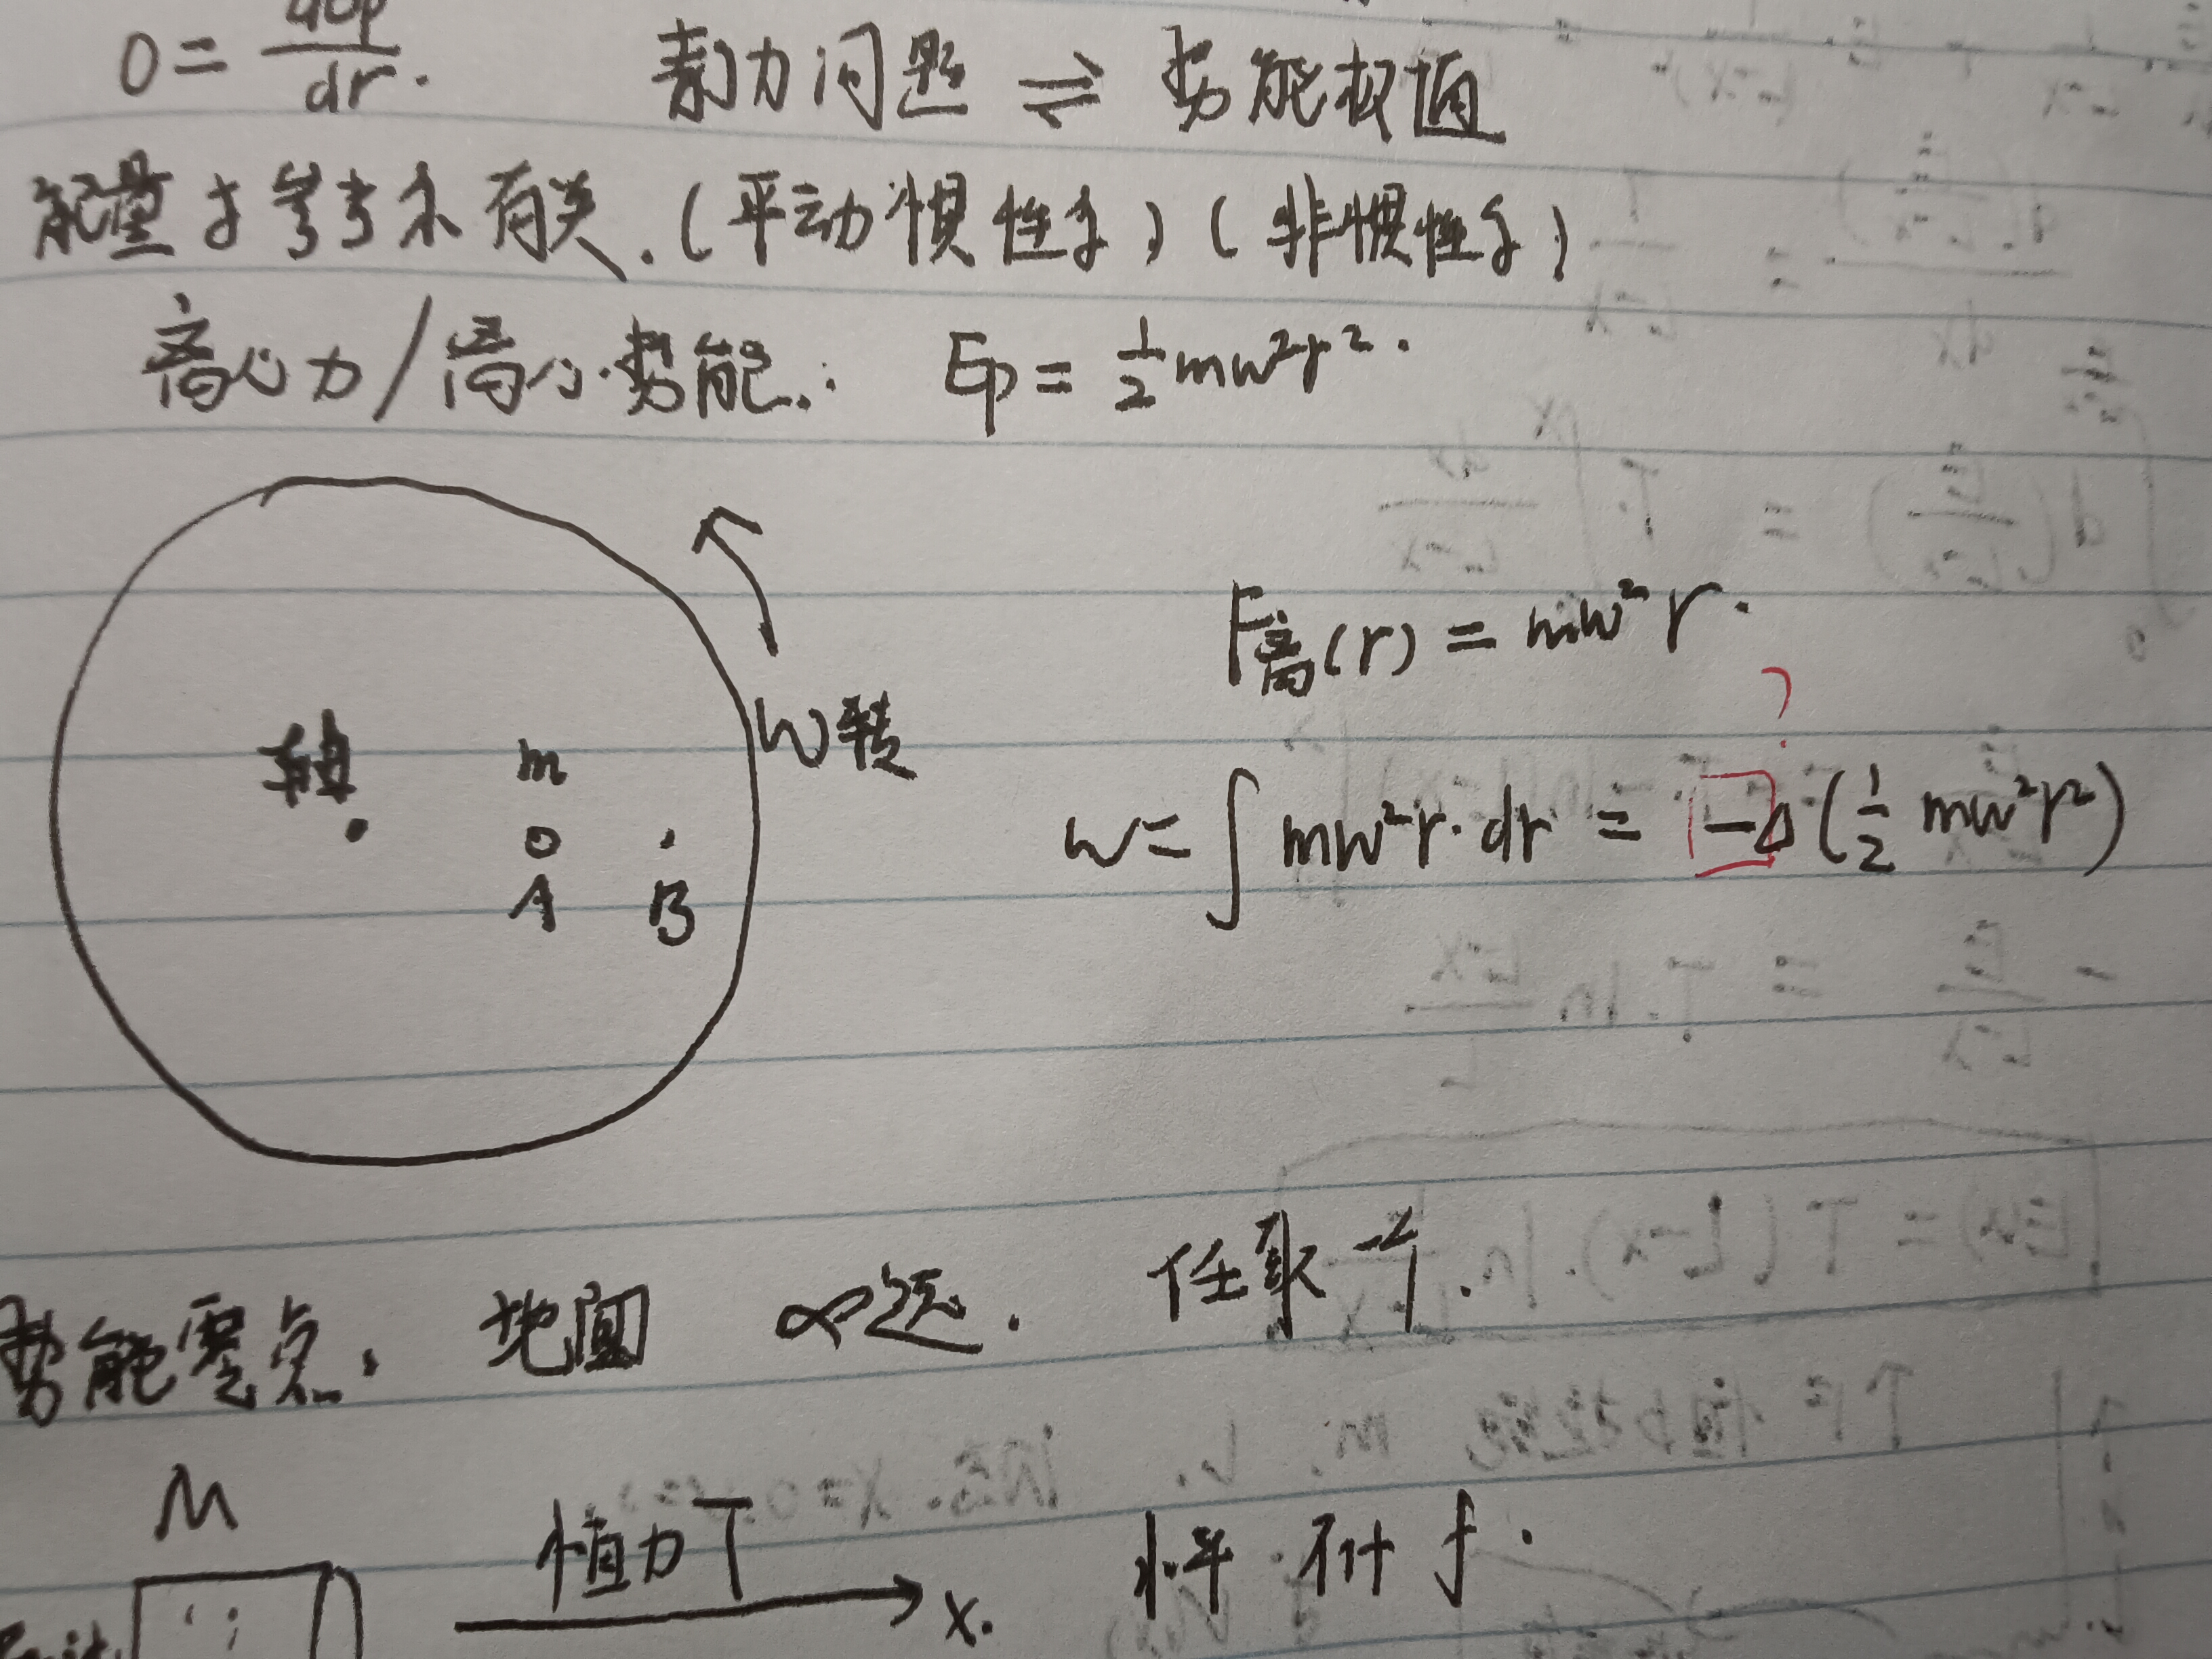 0 = dEp/dr.  素力问题 ⇌ 势能极值
能量与参考系有关.(平动惯性系)(非惯性系)
离心力/离心势能: Ep = 1/2 mw²r².
w转
F离(r) = mw²r.
轴 m
?
A B
w = ∫ mw²r·dr = -Δ(1/2 mw²r²)
势能零点, 地面 ∞远. 任取一个.
M
恒力T x. 水平 不计 f.